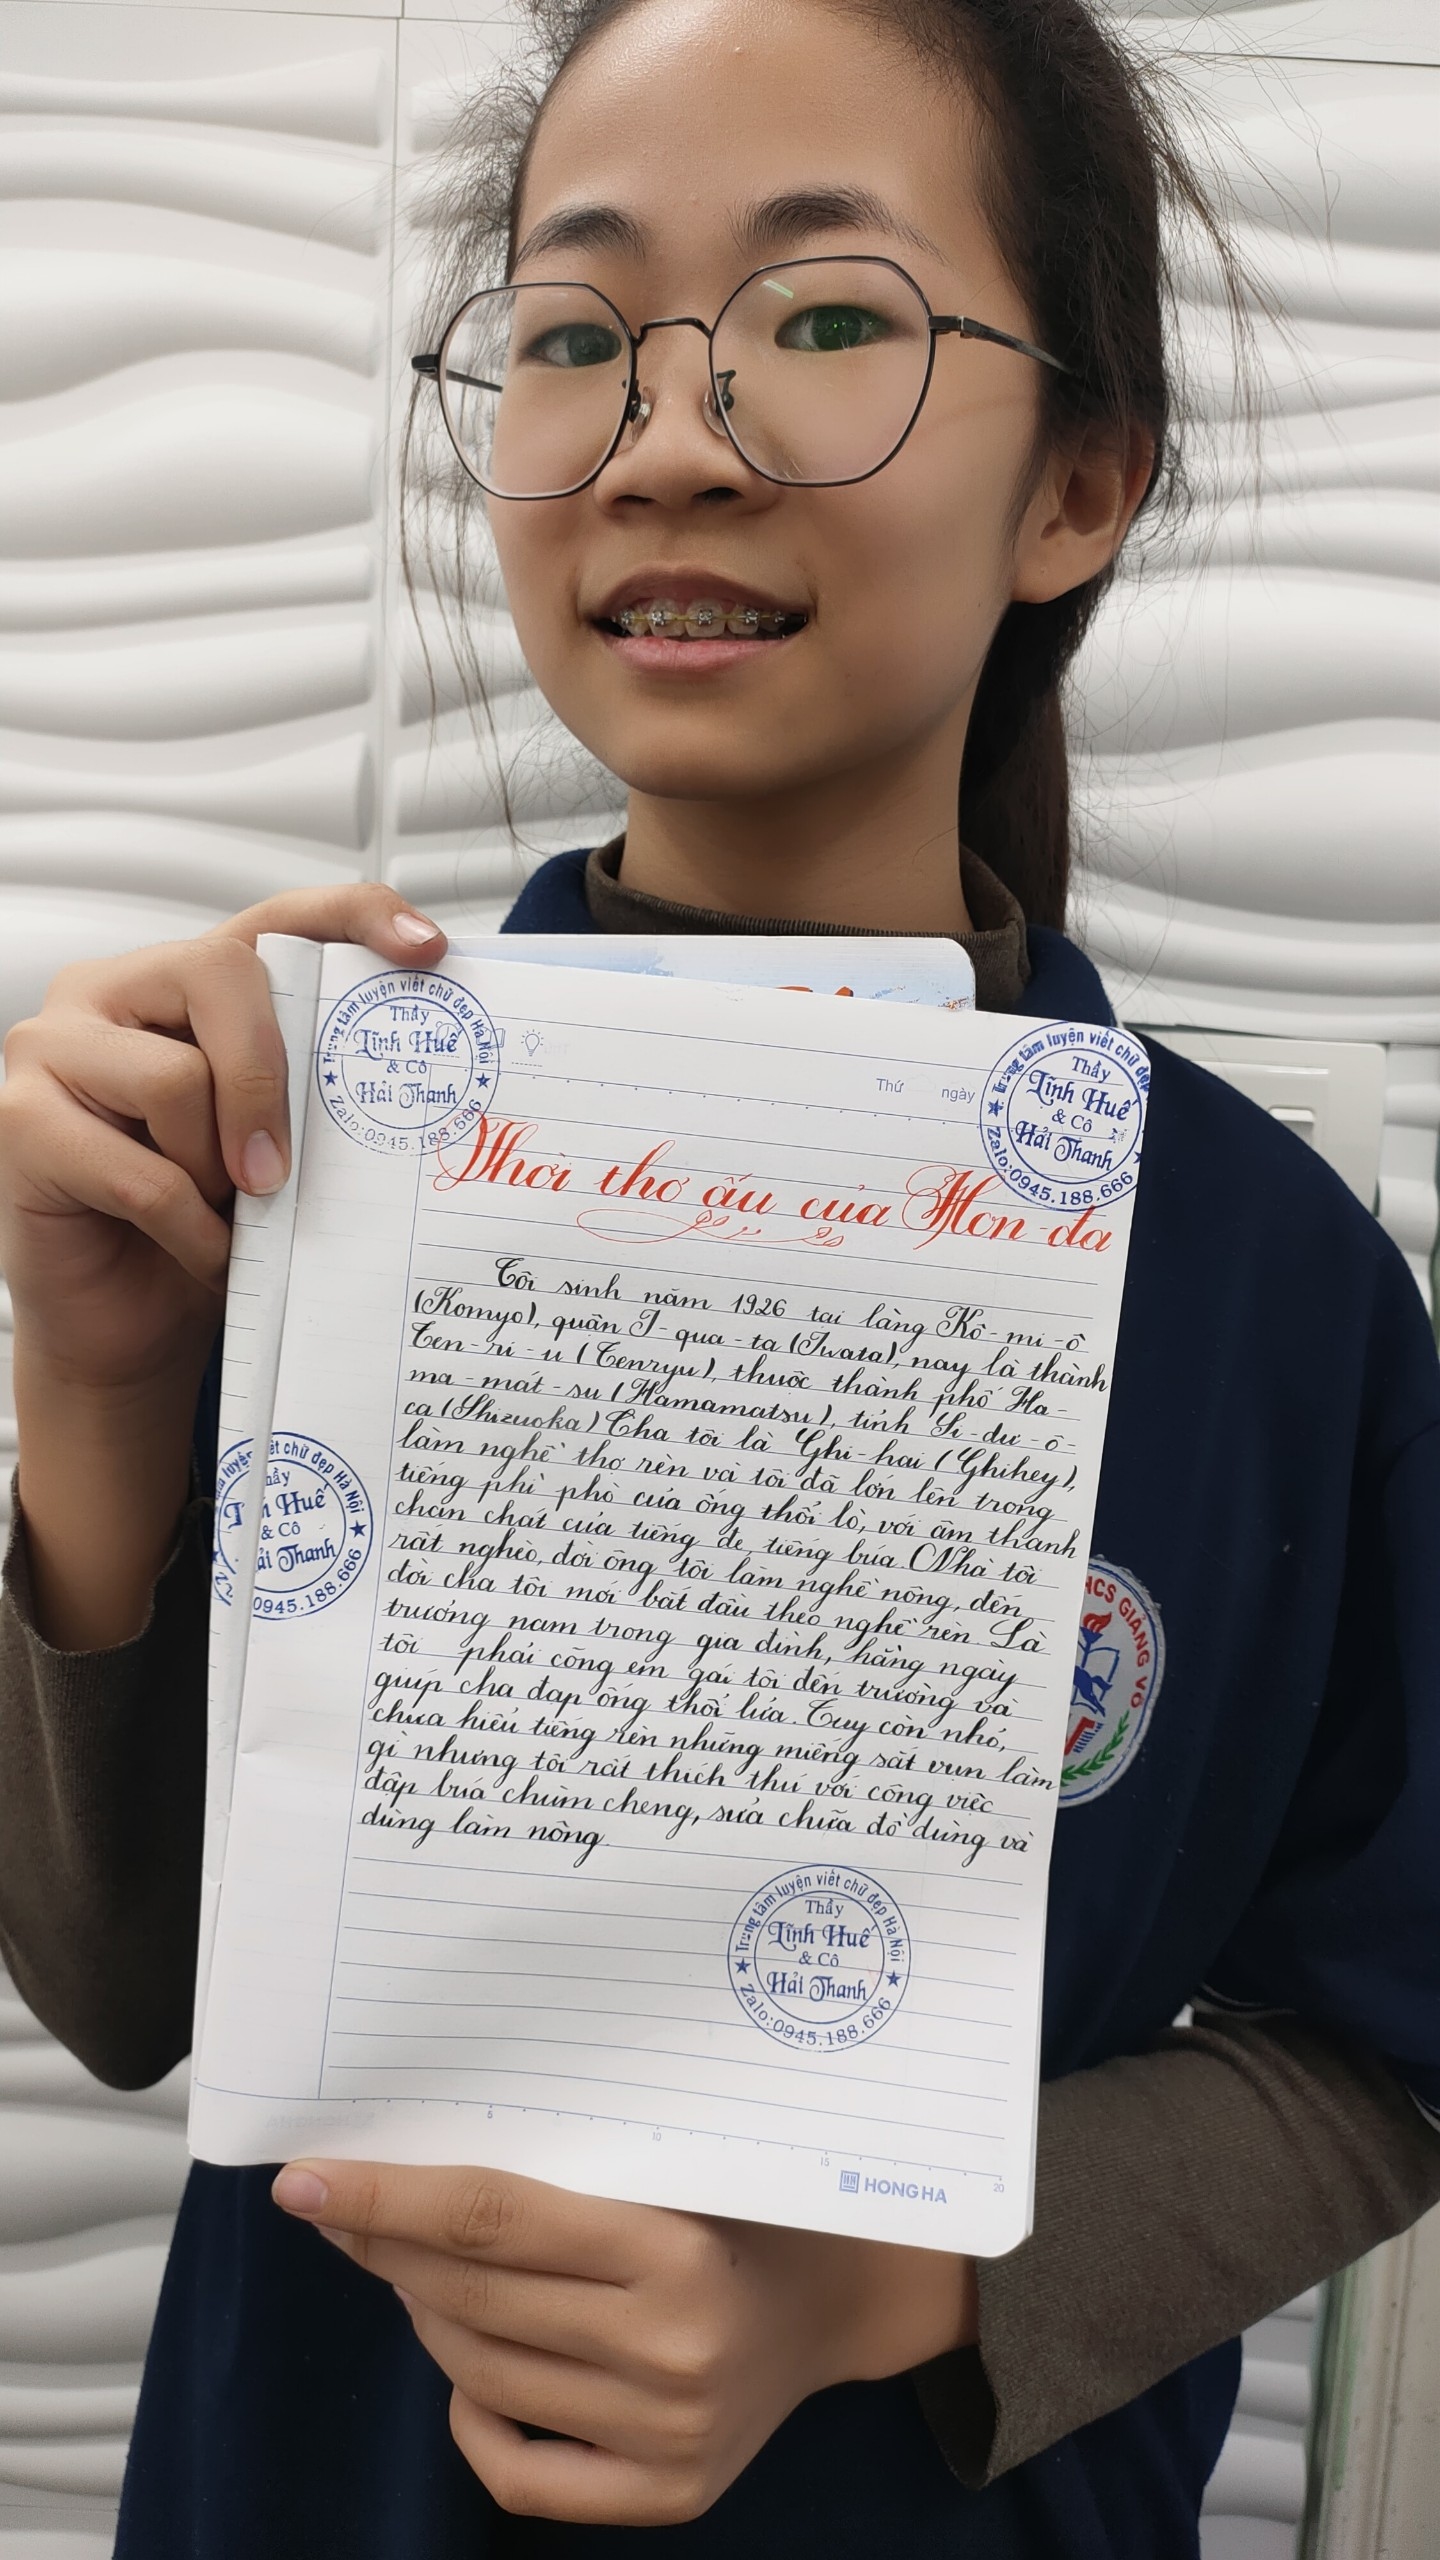 Trung tâm luyện viết chữ đẹp Hà Nội
Thầy
Lĩnh Huế
& Cô
Hải Thanh
Zalo:0945.188.666
Thứ ngày
Trung tâm luyện viết chữ đẹp
Thầy
Lĩnh Huế
& Cô
Hải Thanh
Zalo:0945.188.666
Thời thơ ấu của Hon-đa
Tôi sinh năm 1926 tại làng Kô-mi-ô
(Komyo), quận I-qua-ta (Iwata), nay là thành
Ten-ri-u (Tenryu), thuộc thành phố Ha-
ma-mát-su (Hamamatsu), tỉnh Si-dư-ô-
ca (Shizuoka) Cha tôi là Ghi-hai (Ghihey),
làm nghề thợ rèn và tôi đã lớn lên trong
tiếng phì phò của ống thổi lò, với âm thanh
chan chát của tiếng đe, tiếng búa. Nhà tôi
rất nghèo, đời ông tôi làm nghề nông, đến
đời cha tôi mới bắt đầu theo nghề rèn. Là
trưởng nam trong gia đình, hằng ngày
tôi phải cõng em gái tôi đến trường và
giúp cha đạp ống thổi lửa. Tuy còn nhỏ,
chưa hiểu tiếng rèn những miếng sắt vụn làm
gì nhưng tôi rất thích thú với công việc
đập búa chùm cheng, sửa chữa đồ dùng và
dùng làm nông.
luyện viết chữ đẹp Hà Nội
hầy
h Huế
& Cô
ải Thanh
0945.188.666
HCS GIẢNG VÕ
Trung tâm luyện viết chữ đẹp Hà Nội
Thầy
Lĩnh Huế
& Cô
Hải Thanh
Zalo:0945.188.666
5 10 15 20
HONG HA